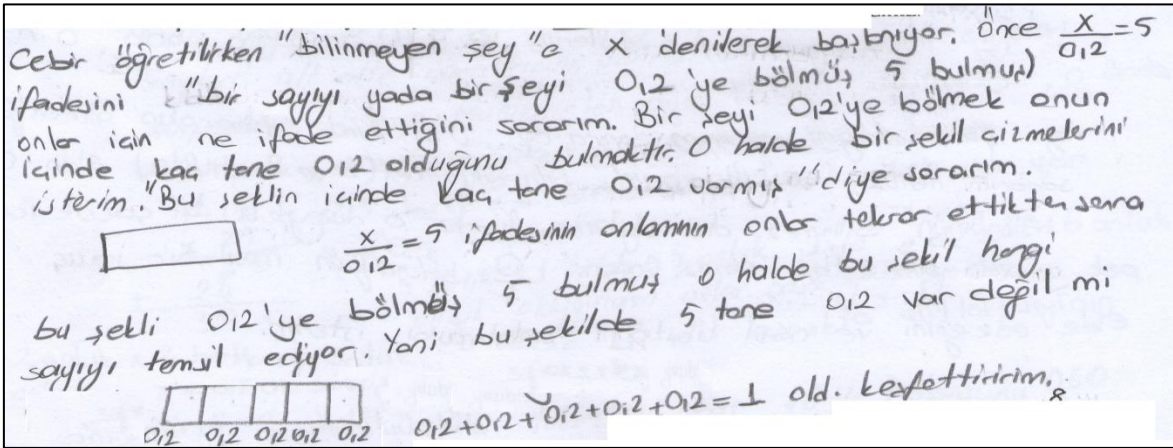 Cebir öğretilirken "bilinmeyen şey"e X denilerek başlanıyor. Önce x/0,2 = 5
ifadesini "bir sayıyı yada bir şeyi 0,2'ye bölmüş 5 bulmuş)
onlar için ne ifade ettiğini sorarım. Bir şeyi 0,2'ye bölmek onun
içinde kaç tane 0,2 olduğunu bulmaktır. O halde bir şekil çizmelerini
isterim. "Bu şeklin içinde kaç tane 0,2 varmış" diye sorarım.
x/0,2 = 5 ifadesinin anlamını onlar tekrar ettikten sonra
bu şekli 0,2'ye bölmüş 5 bulmuş o halde bu şekil hangi
sayıyı temsil ediyor. Yani bu şekilde 5 tane 0,2 var değil mi
0,2 0,2 0,2 0,2 0,2 0,2+0,2+0,2+0,2+0,2=1 old. keşfettiririm.